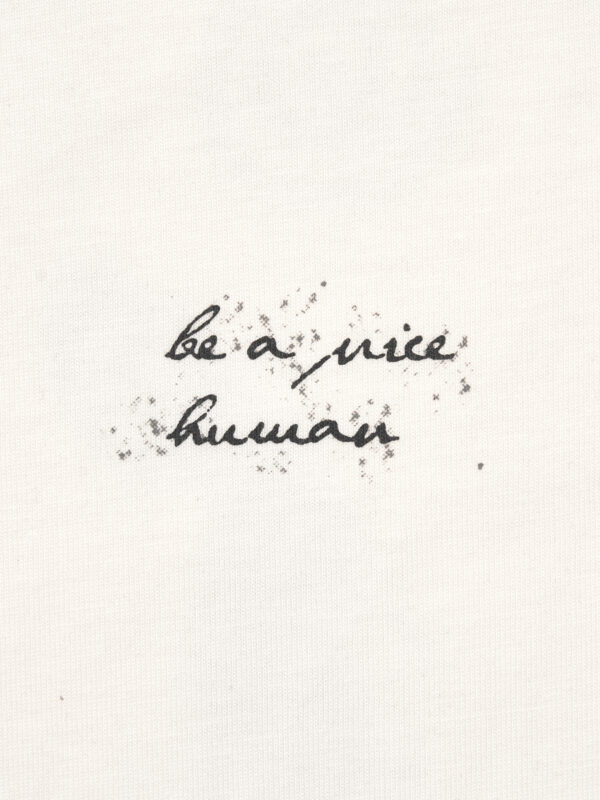 be a nice
human